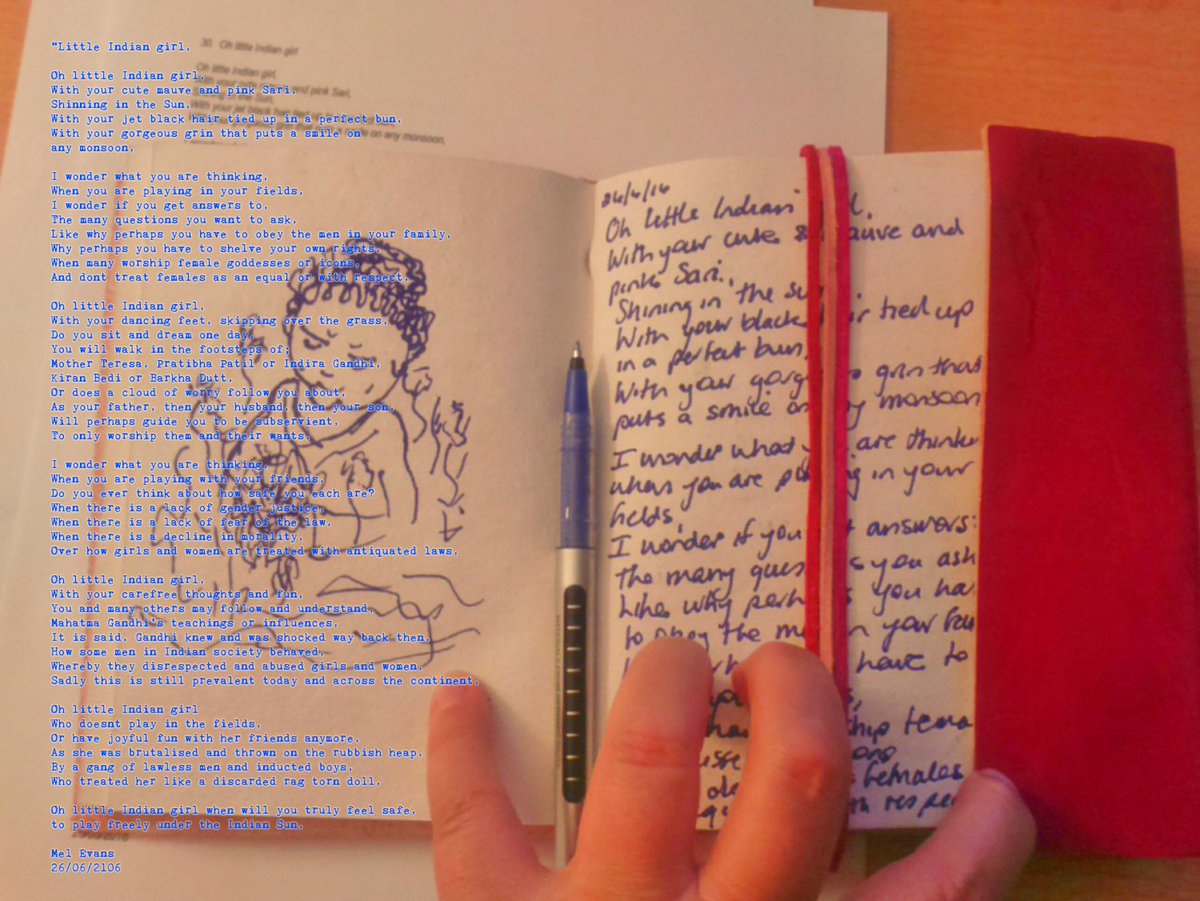 "Little Indian girl,
Oh little Indian girl,
With your cute mauve and pink Sari,
Shinning in the Sun,
With your jet black hair tied up in a perfect bun,
With your gorgeous grin that puts a smile on
any monsoon,
I wonder what you are thinking,
When you are playing in your fields,
I wonder if you get answers to,
The many questions you want to ask,
Like why perhaps you have to obey the men in your family,
Why perhaps you have to shelve your own rights,
When many worship female goddesses or icons,
And dont treat females as an equal or with respect,
Oh little Indian girl,
With your dancing feet, skipping over the grass,
Do you sit and dream one day,
You will walk in the footsteps of;
Mother Teresa, Pratibha Patil or Indira Gandhi,
Kiran Bedi or Barkha Dutt,
Or does a cloud of worry follow you about,
As your father, then your husband, then your son,
Will perhaps guide you to be subservient,
To only worship them and their wants,
I wonder what you are thinking,
When you are playing with your friends,
Do you ever think about how safe you each are?
When there is a lack of gender justice,
When there is a lack of fear of the law,
When there is a decline in morality,
Over how girls and women are treated with antiquated laws.
Oh little Indian girl,
With your carefree thoughts and fun,
You and many others may follow and understand,
Mahatma Gandhi's teachings or influences,
It is said, Gandhi knew and was shocked way back then,
How some men in Indian society behaved,
Whereby they disrespected and abused girls and women,
Sadly this is still prevalent today and across the continent,
Oh little Indian girl
Who doesnt play in the fields,
Or have joyful fun with her friends anymore,
As she was brutalised and thrown on the rubbish heap,
By a gang of lawless men and inducted boys,
Who treated her like a discarded rag torn doll,
Oh little Indian girl when will you truly feel safe,
to play freely under the Indian Sun,
Mel Evans
26/06/2106
30. Oh little Indian girl
Oh little Indian girl,
and pink Sari,
in the Sun,
With your jet black hair tied up
on any monsoon,
Oh little Indian
With your cute mauve and
pink Sari,
Shining in the su
With your black ir tied up
in a perfect bun,
With your gorg s grin that
puts a smile on y monsoon
I wonder what y are thinkin
when you are pl ing in your
fields,
I wonder if you t answers
the many ques s you ask
Like why perh s you ha
to obey the m n your fam
have to
ship fema
females
th respe